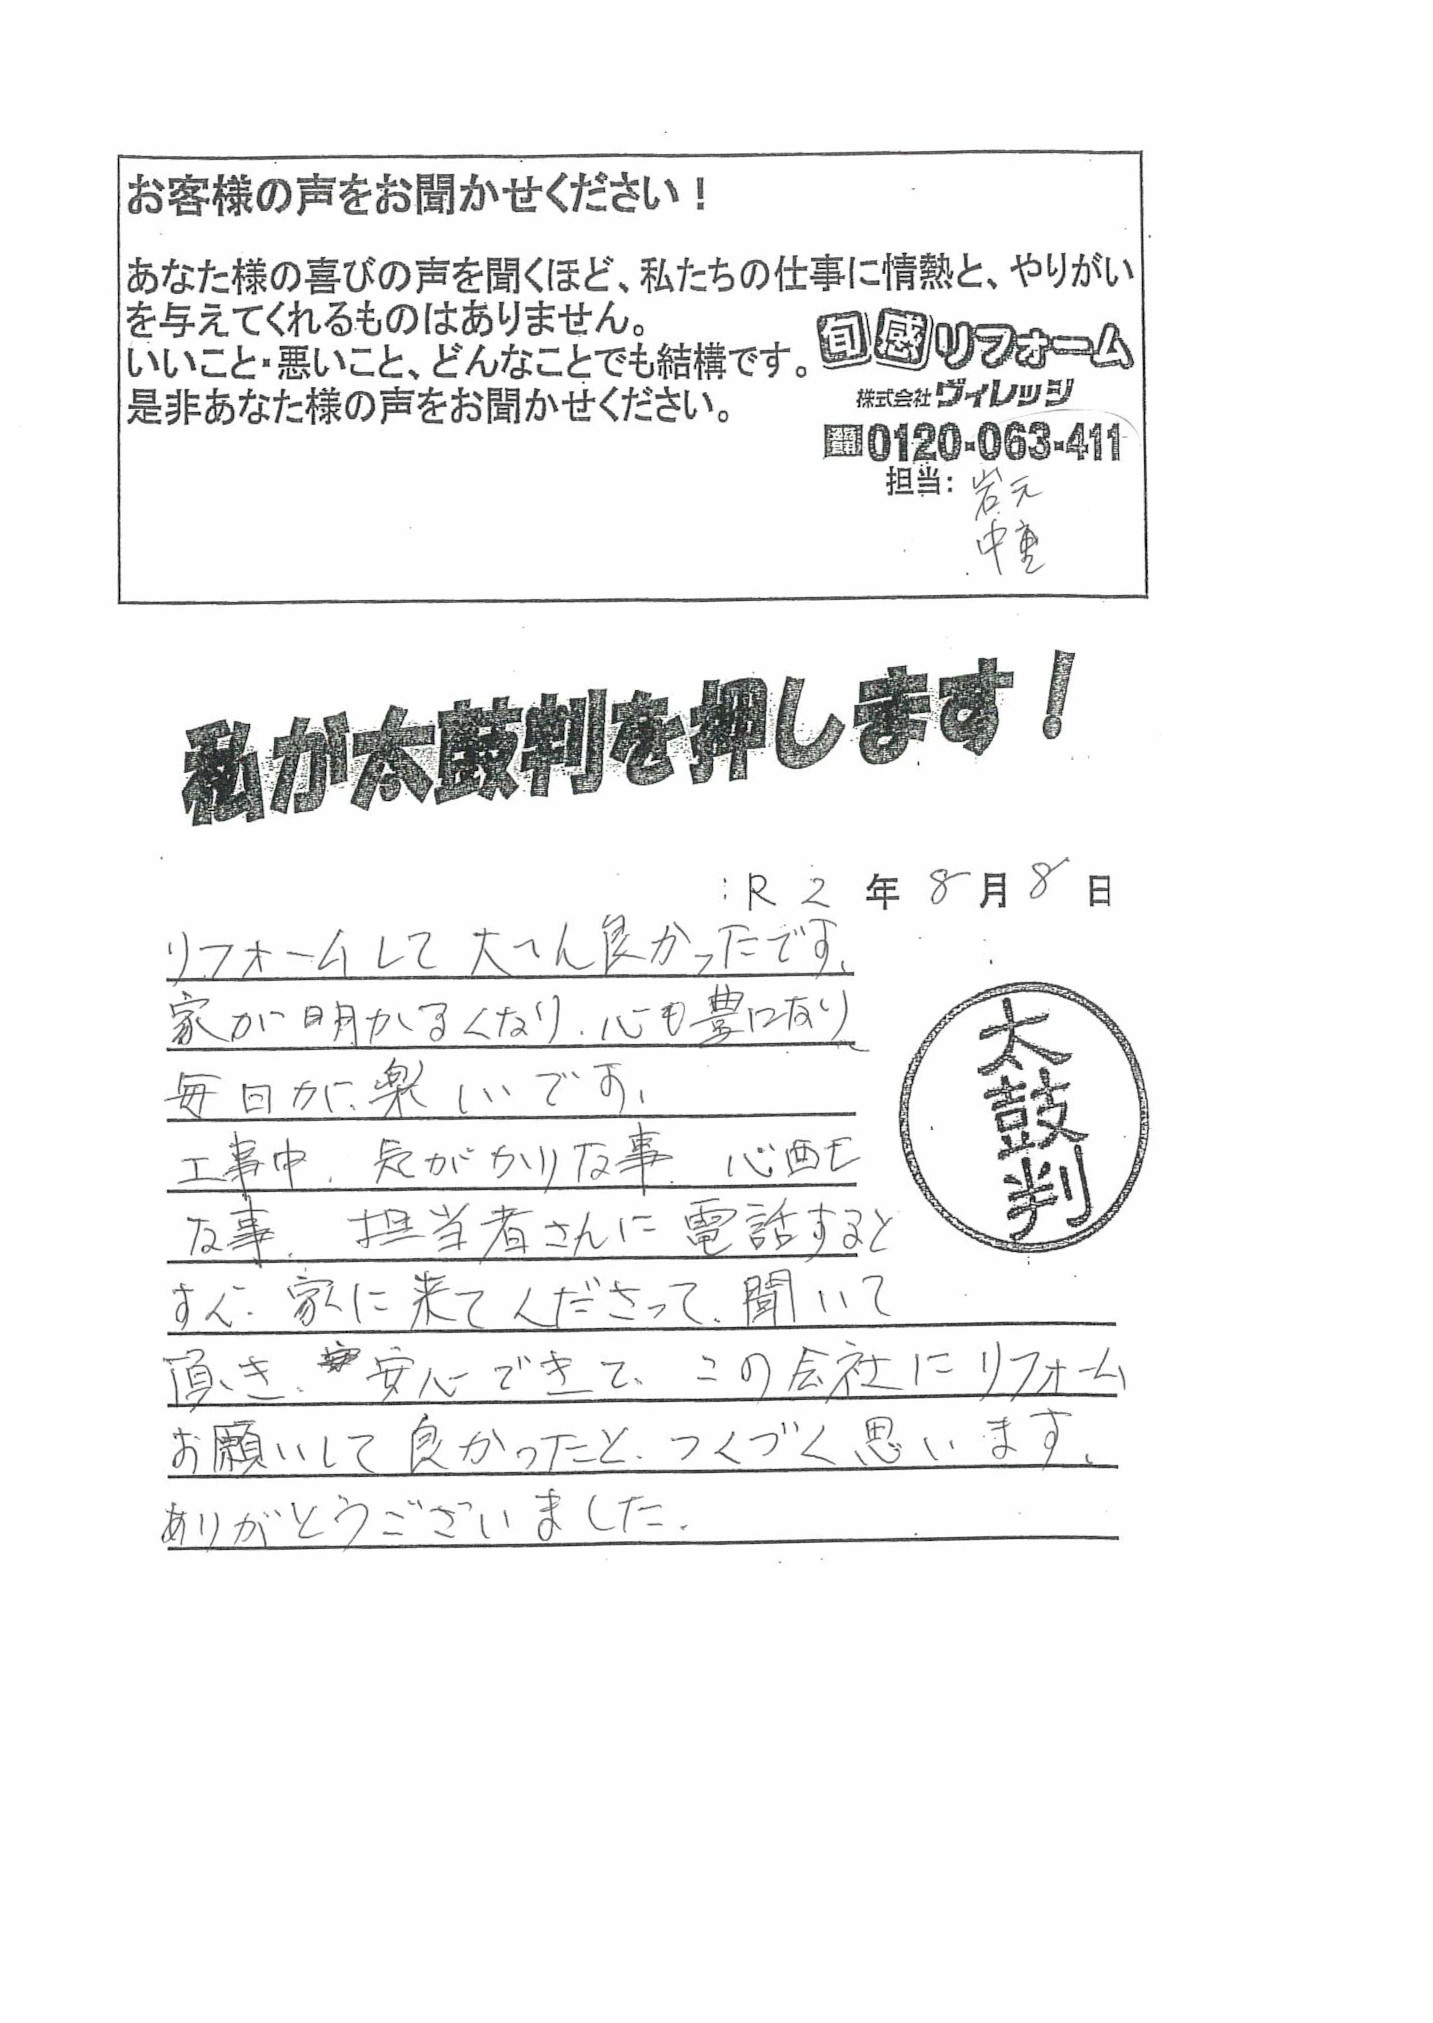 お客様の声をお聞かせください！
あなた様の喜びの声を聞くほど、私たちの仕事に情熱と、やりがい
を与えてくれるものはありません。
いいこと・悪いこと、どんなことでも結構です。
是非あなた様の声をお聞かせください。
旬感リフォーム
株式会社ヴィレッジ
0120-063-411
担当：岩元
中重
私が太鼓判を押します！
R2年8月8日
リフォームして大へん良かったです、
家が明かるくなり、心も豊になり
毎日が楽しいです、
太鼓判
工事中、気がかりな事、心配
な事、担当者さんに電話すると
すぐ、家に来てくださって、聞いて
頂き、安心できて、この会社にリフォーム
お願いして良かったと、つくづく思います、
ありがとうございました。